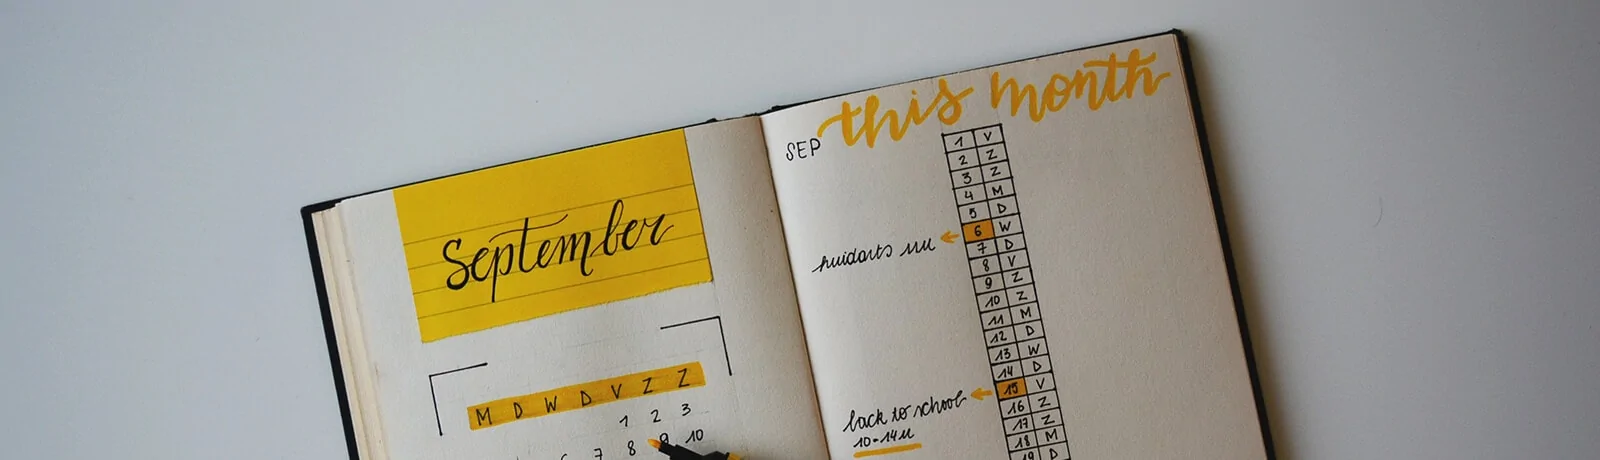 September
M D W D V Z Z
1 2 3
7 8 9 10
this month
SEP
1 V
2 Z
3 Z
4 M
5 D
6 W
7 D
8 V
9 Z
10 Z
11 M
12 D
13 W
14 D
15 V
16 Z
17 Z
18 M
19 D
huidarts
back to school
10-14u